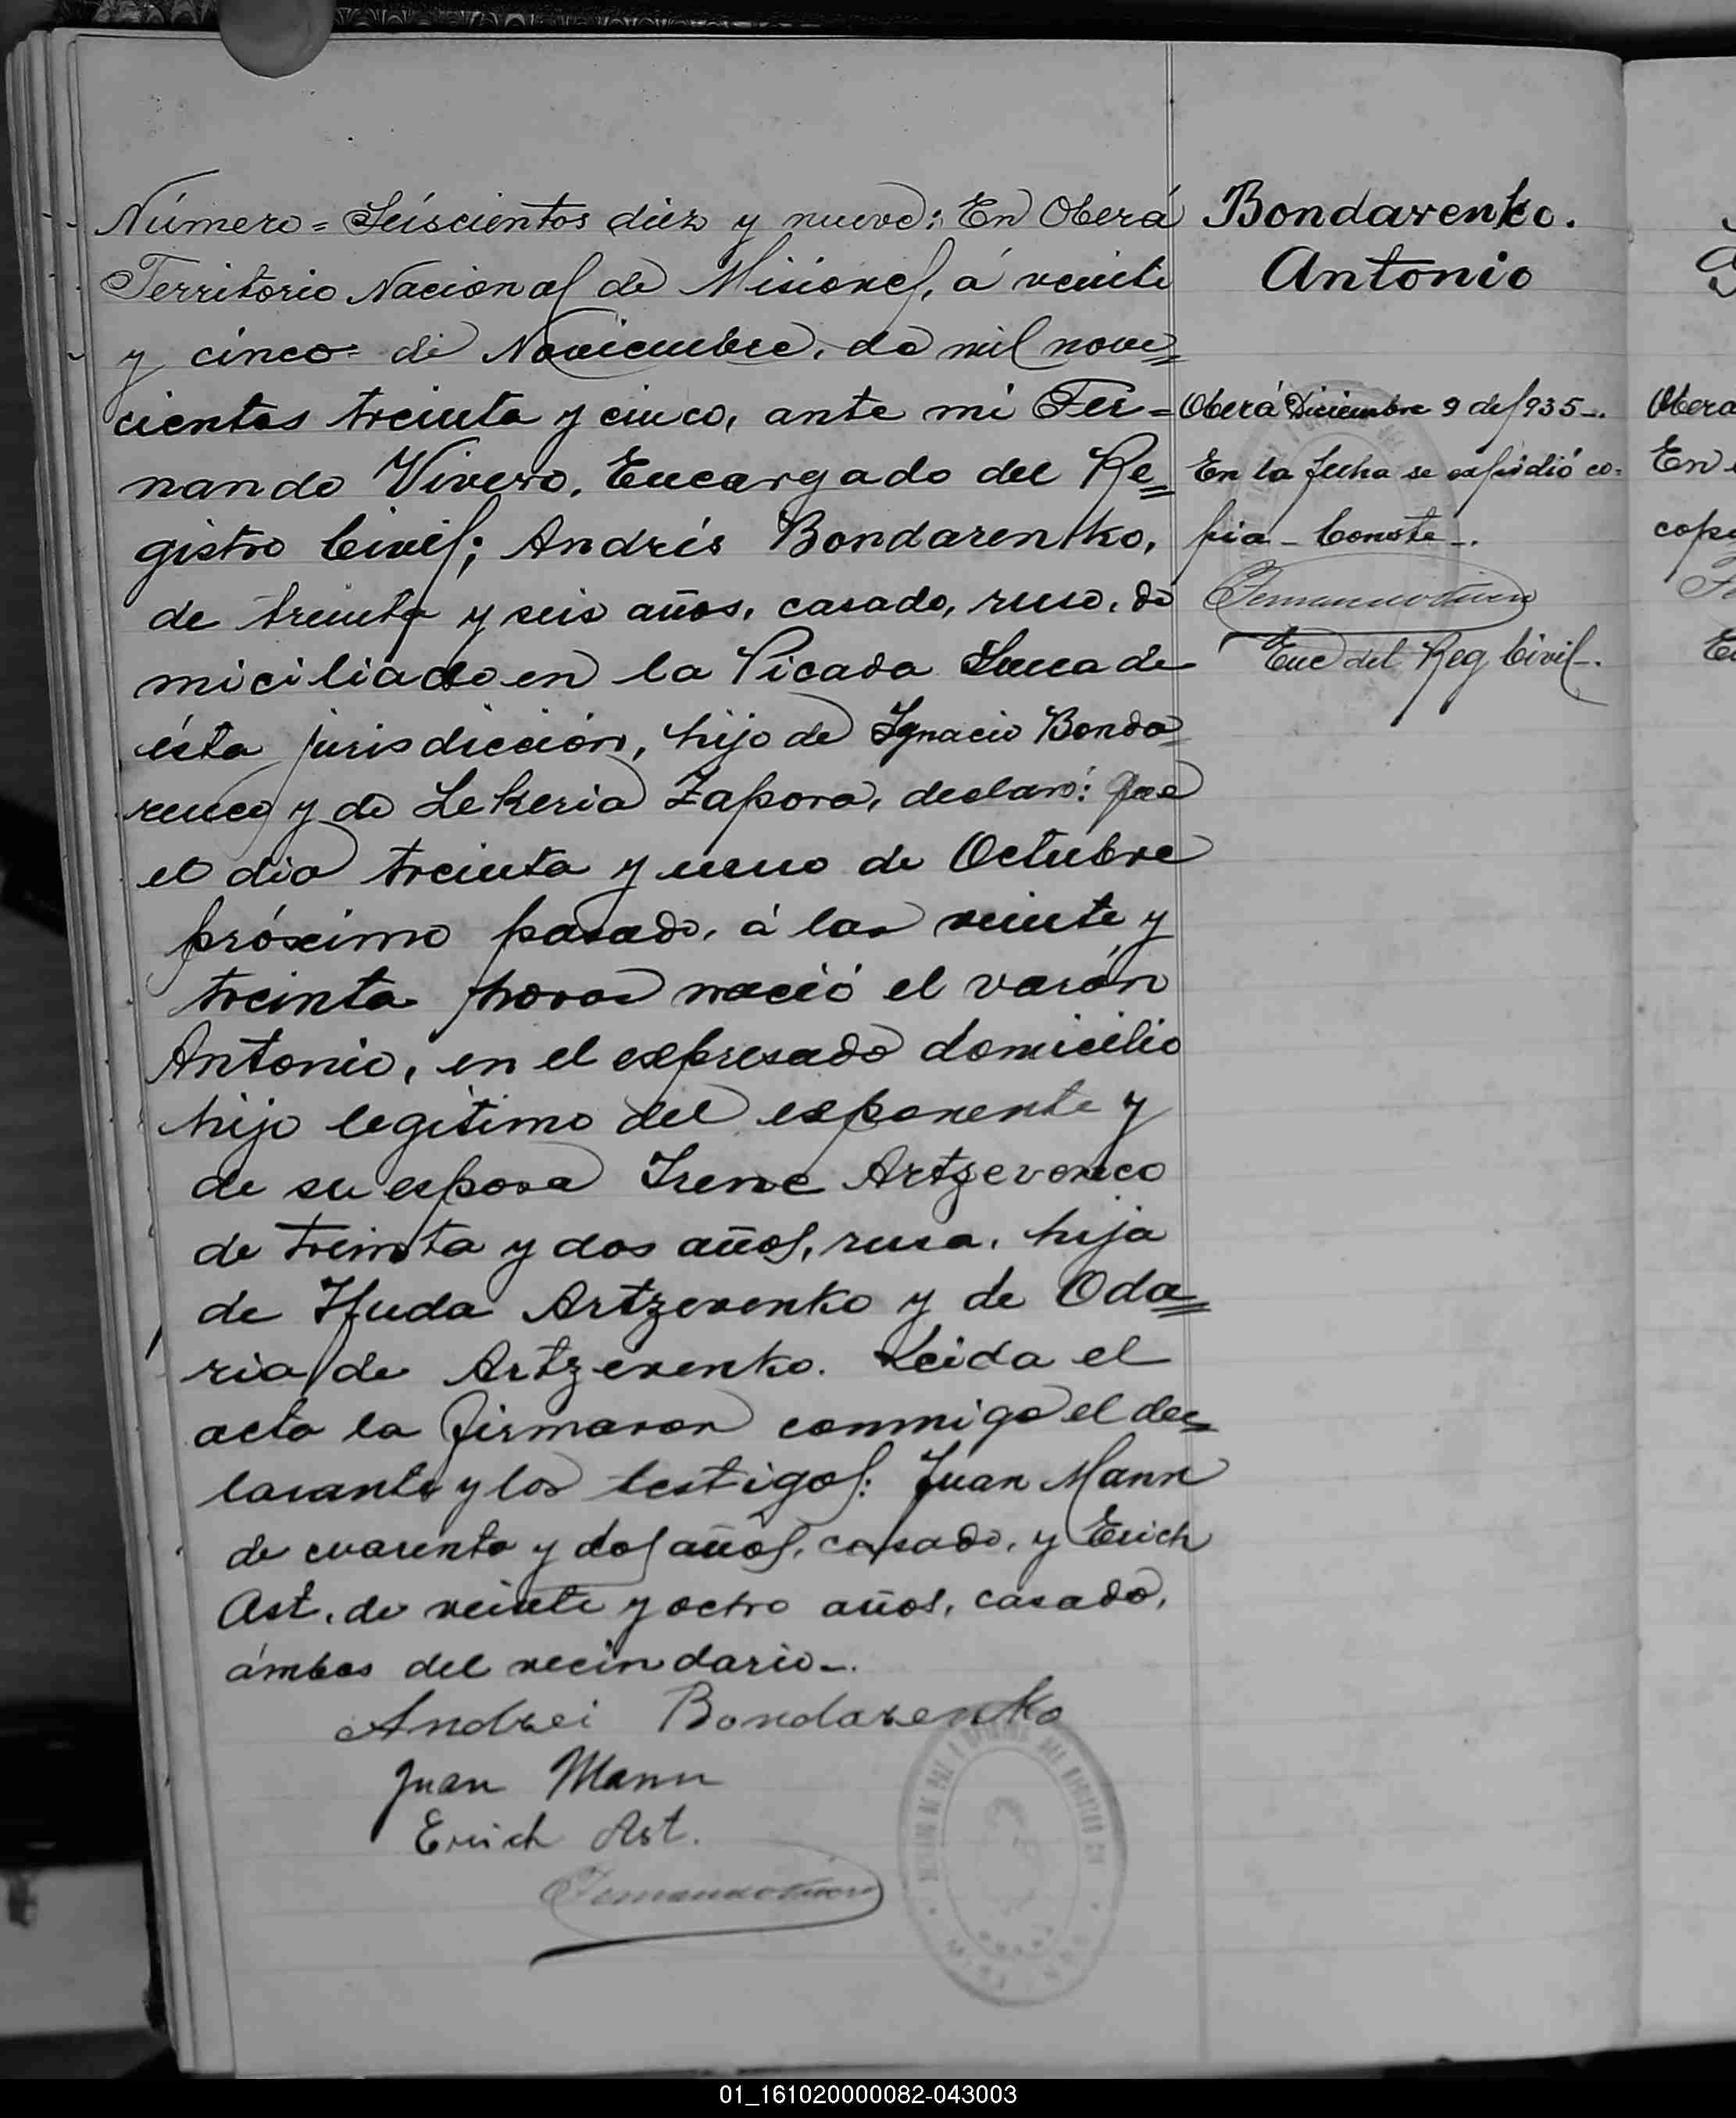 Número = Seiscientos diez y nueve: En Oberá
Territorio Nacional de Misiones, á veinte
y cinco de Noviembre, de mil nove=
cientos treinta y cinco, ante mi Fer=
nando Vivero, Encargado del Re=
gistro Civil; Andrés Bondarenko,
de treinta y seis años, casado, ruso, do
miciliado en la Picada Sueca de
ésta jurisdicción, hijo de Ignacio Bonda
renco y de Lekeria Zapora, declaró: Que
el dia treinta y uno de Octubre
próximo pasado, á las veinte y
treinta horas nació el varón
Antonio, en el expresado domicilio
hijo legítimo del exponente y
de su esposa Irene Artzevenco
de treinta y dos años, rusa, hija
de Huda Artzevenko y de Oda=
ria de Artzevenko. Leida el
acta la firmaron conmigo el dec=
larante y los testigos: Juan Mann
de cuarenta y dos años, casado, y Erich
Ast, de veinte y ocho años, casado,
ámbos del vecindario-.
Andrei Bondarenko
Juan Mann
Erich Ast.
Fernando Vivero
Bondarenko.
Antonio
Oberá Diciembre 9 de 1935-.
En la fecha se expidió co=
pia - Conste-.
Fernando Vivero
Enc del Reg Civil-.
Obera
En
copi
01_161020000082-043003